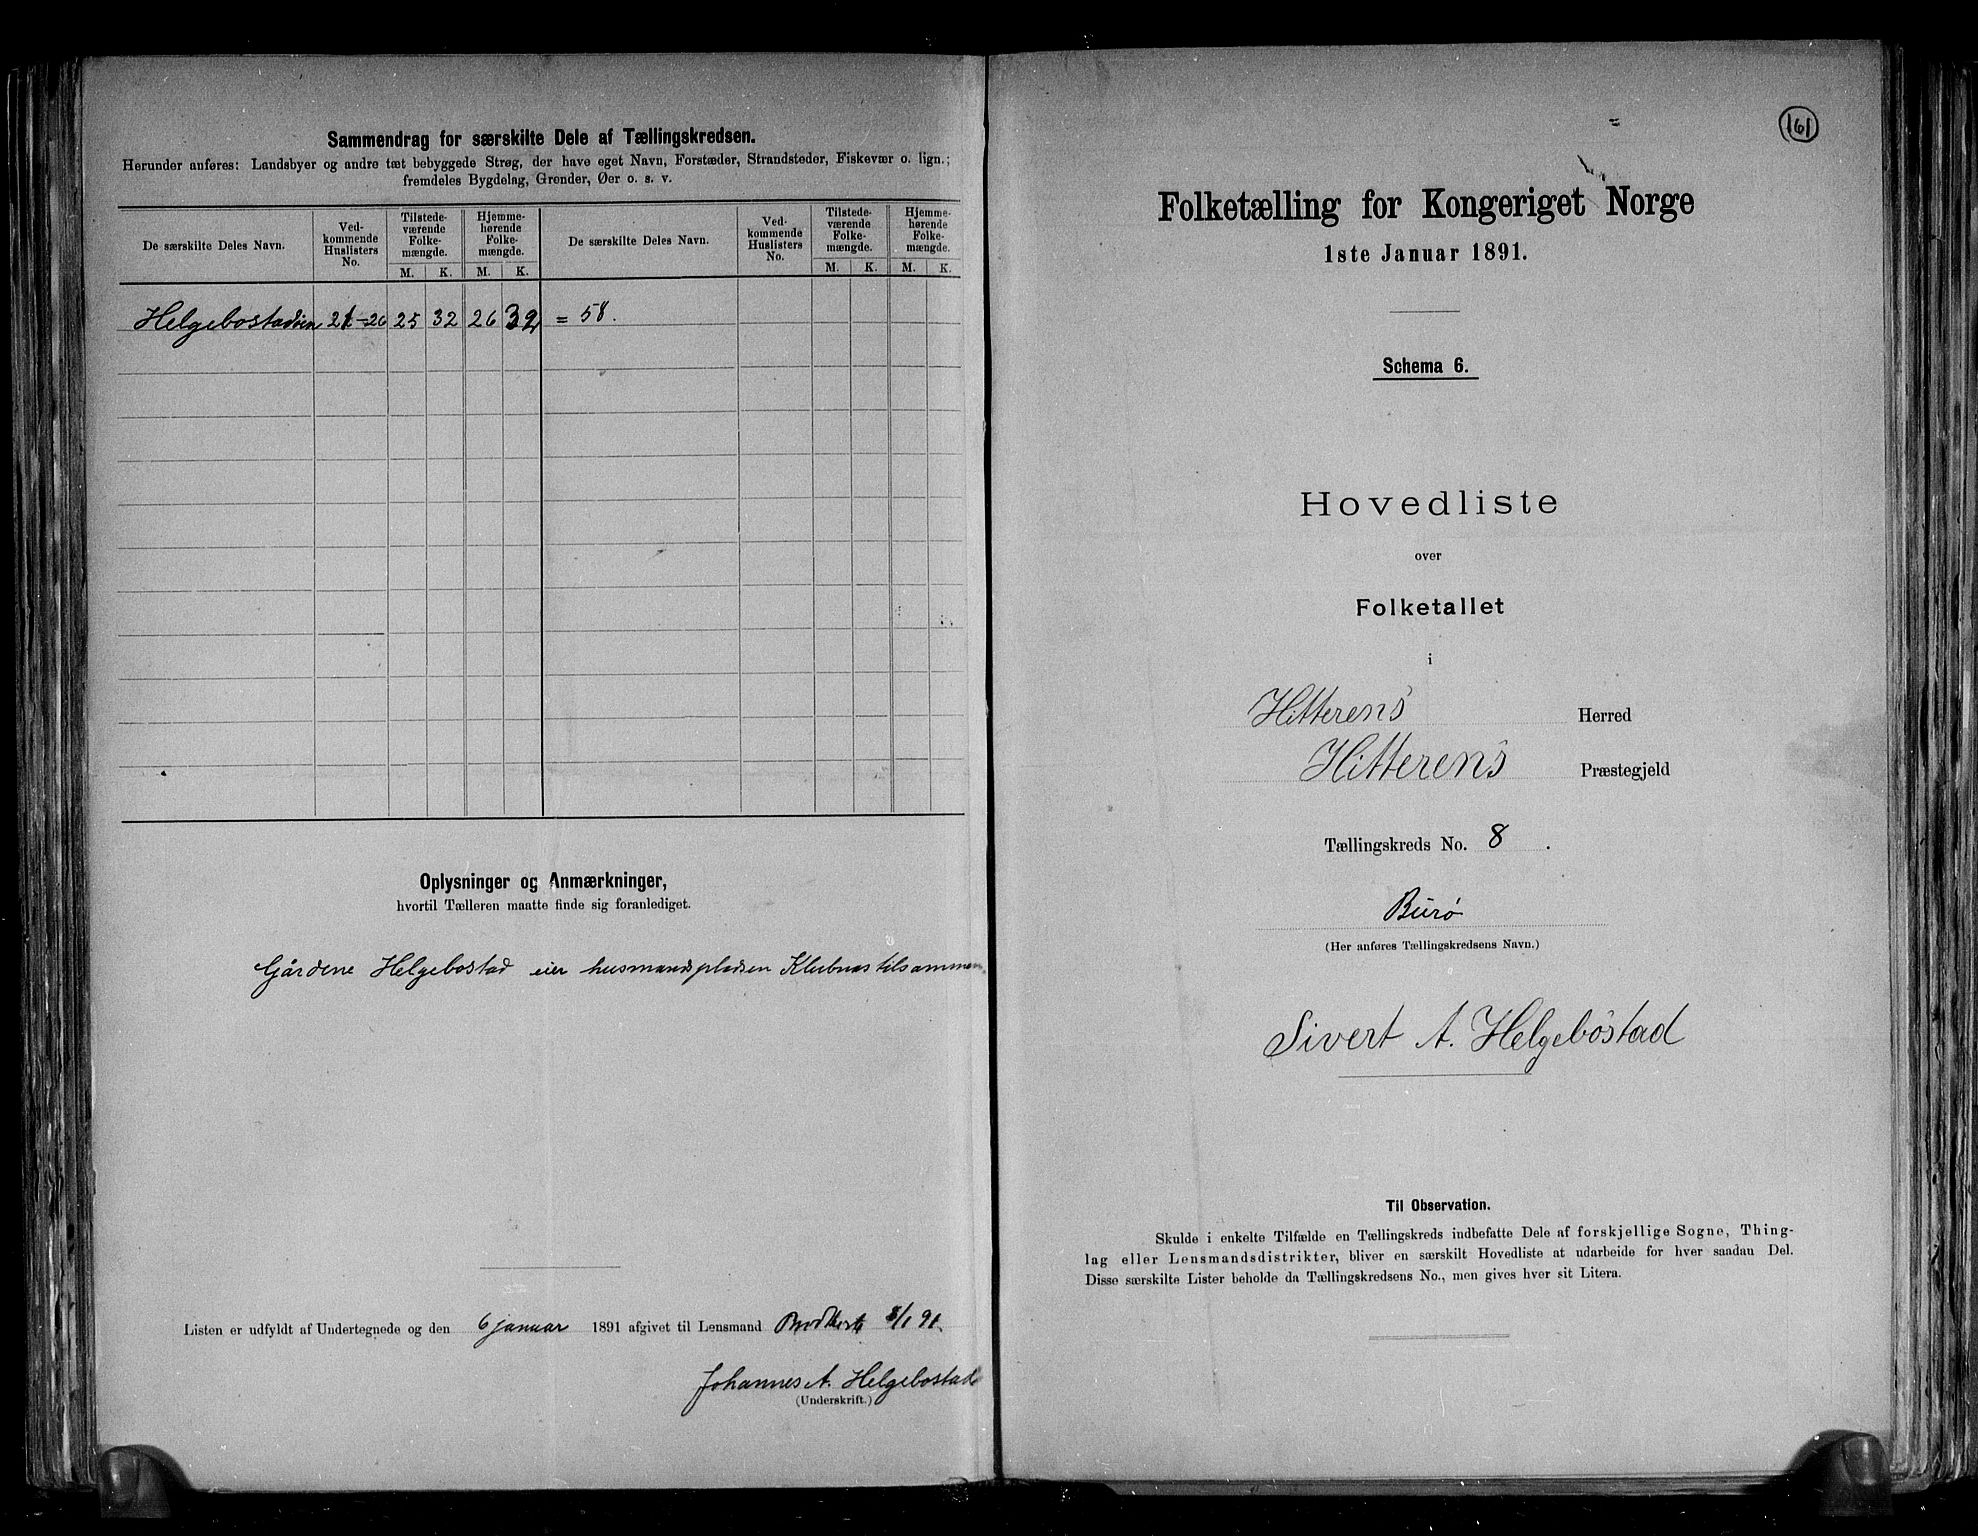 Sammendrag for særskilte Dele af Tællingskredsen.
Herunder anføres: Landsbyer og andre tæt bebyggede Strøg, der have eget Navn, Forstæder, Strandsteder, Fiskevær o. lign.;
fremdeles Bygdelag, Grender, Øer o. s. v.
De særskilte Deles Navn.
Ved-
kommende
Huslisters
No.
Tilstede-
værende
Folke-
mængde.
M. K.
Hjemme-
hørende
Folke-
mængde.
M. K.
De særskilte Deles Navn.
Ved-
kommende
Huslisters
No.
Tilstede-
værende
Folke-
mængde.
M. K.
Hjemme-
hørende
Folke-
mængde.
M. K.
21-26 25 32 26 32 = 58.
Oplysninger og Anmærkninger,
hvortil Tælleren maatte finde sig foranlediget.
Gårdene Helgebostad eier husmandspladsen Klubnæs tilsammen
Listen er udfyldt af Undertegnede og den 6 januar 1891 afgivet til Lensmand 8/1 91.
Johannes A. Helgebostad
(Underskrift.)
161
Folketælling for Kongeriget Norge
1ste Januar 1891.
Schema 6.
Hovedliste
over
Folketallet
i
Hitterens Herred
Hitterens Præstegjeld
Tællingskreds No. 8.
Burø
(Her anføres Tællingskredsens Navn.)
Sivert A. Helgebostad
Til Observation.
Skulde i enkelte Tilfælde en Tællingskreds indbefatte Dele af forskjellige Sogne, Thing-
lag eller Lensmandsdistrikter, bliver en særskilt Hovedliste at udarbeide for hver saadan Del.
Disse særskilte Lister beholde da Tællingskredsens No., men gives hver sit Litera.